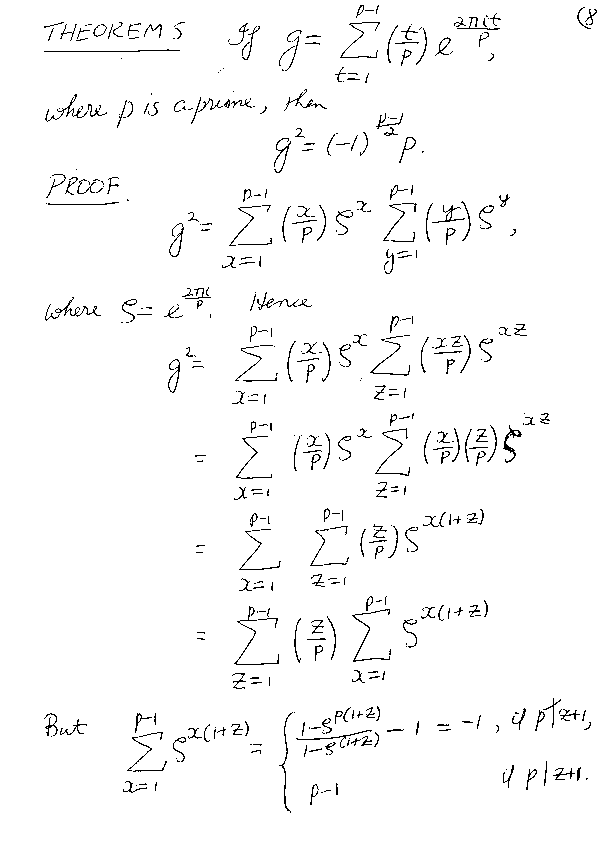 (8
THEOREM 5 If g = \sum_{t=1}^{p-1} (\frac{t}{p}) e^{\frac{2\pi i t}{p}},
where p is a prime, then
g^2 = (-1)^{\frac{p-1}{2}} p.
PROOF.
g^2 = \sum_{x=1}^{p-1} (\frac{x}{p}) ζ^x \sum_{y=1}^{p-1} (\frac{y}{p}) ζ^y,
where ζ = e^{\frac{2\pi i}{p}}. Hence
g^2 = \sum_{x=1}^{p-1} (\frac{x}{p}) ζ^x \sum_{z=1}^{p-1} (\frac{xz}{p}) ζ^{xz}
= \sum_{x=1}^{p-1} (\frac{x}{p}) ζ^x \sum_{z=1}^{p-1} (\frac{x}{p})(\frac{z}{p}) ζ^{xz}
= \sum_{x=1}^{p-1} \sum_{z=1}^{p-1} (\frac{z}{p}) ζ^{x(1+z)}
= \sum_{z=1}^{p-1} (\frac{z}{p}) \sum_{x=1}^{p-1} ζ^{x(1+z)}
But \sum_{x=1}^{p-1} ζ^{x(1+z)} = { \frac{1-ζ^{p(1+z)}}{1-ζ^{(1+z)}} - 1 = -1, if p∤z+1,
p-1 if p|z+1.